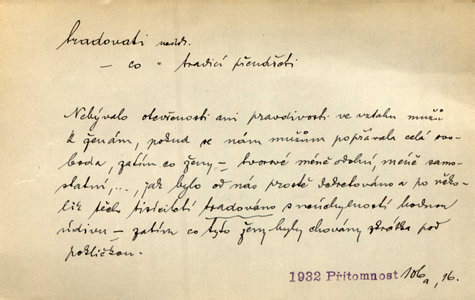 tradovati nedok.
— co " tradicí přenášeti
Nebývalo otevřenosti ani pravdivosti ve vztahu mužů
k ženám, pokud se nám mužům popřávala celá svo-
boda, zatím co ženy — tvorové méně odolní, méně samo-
statní, ..., jak bylo od nás prostě dekretováno a po něko-
lik těch tisíciletí tradováno s neúchylností hodnou
údivu — zatím co tyto ženy byly chovány zkrátka pod
pokličkou.
1932 Přítomnost 106a, 16.